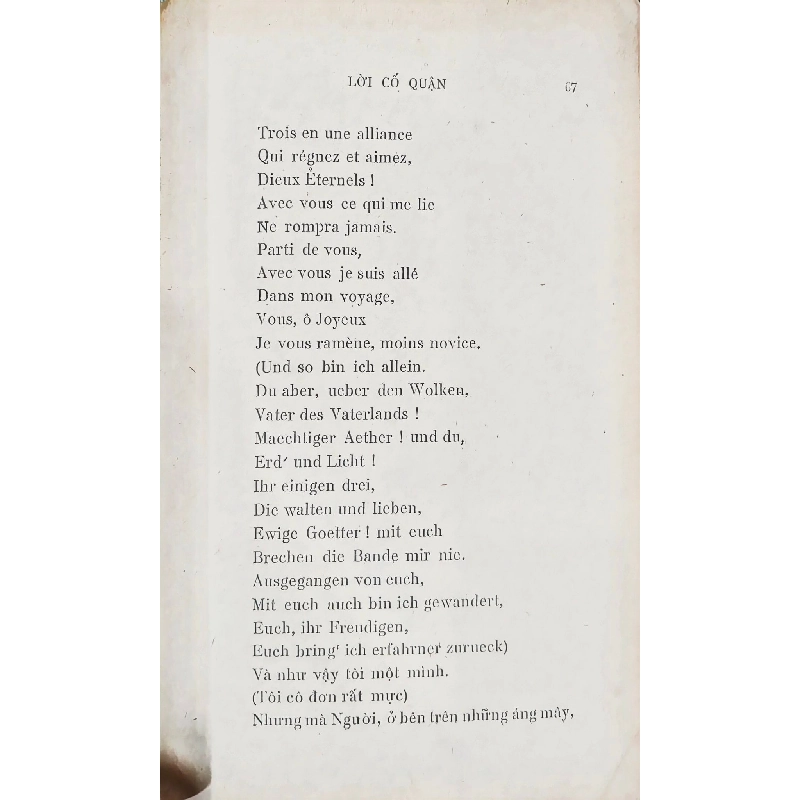 LỜI CỐ QUẬN 67
Trois en une alliance
Qui régnez et aimez,
Dieux Éternels !
Avec vous ce qui me lie
Ne rompra jamais.
Parti de vous,
Avec vous je suis allé
Dans mon voyage,
Vous, ô Joyeux
Je vous ramène, moins novice.
(Und so bin ich allein.
Du aber, ueber den Wolken,
Vater des Vaterlands !
Maechtiger Aether ! und du,
Erd' und Licht !
Ihr einigen drei,
Die walten und lieben,
Ewige Goetter ! mit euch
Brechen die Bande mir nie.
Ausgegangen von euch,
Mit euch auch bin ich gewandert,
Euch, ihr Freudigen,
Euch bring' ich erfahrner zurueck)
Và như vậy tôi một mình.
(Tôi cô đơn rất mực)
Nhưng mà Người, ở bên trên những áng mây,